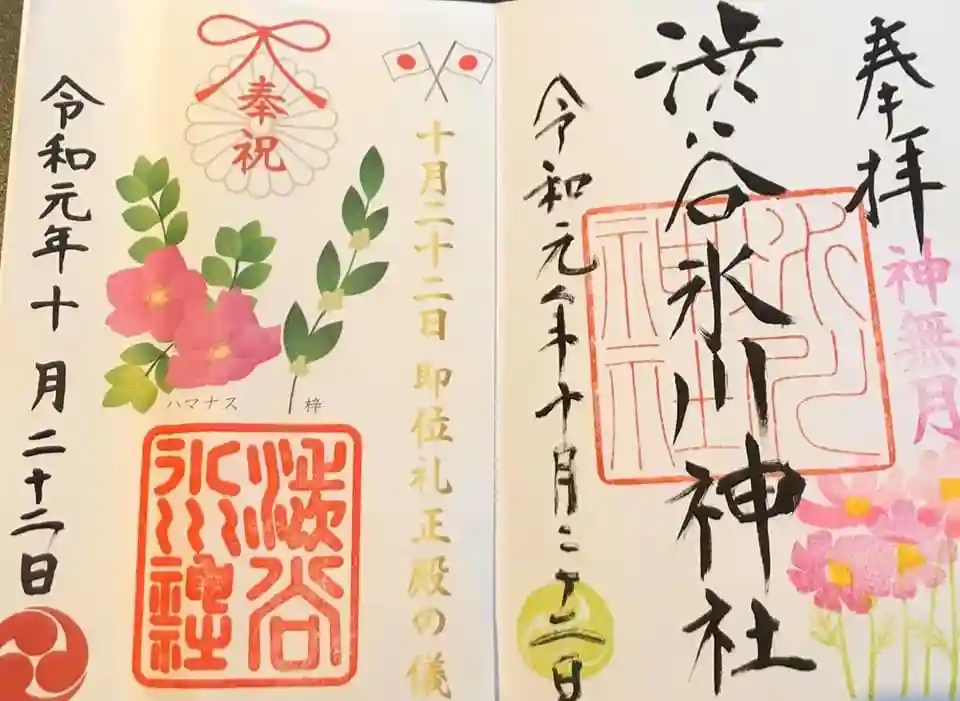 奉拝
神無月
渋谷氷川神社
氷川
神社
令和元年十月二十二日
十月二十二日 即位礼正殿の儀
奉祝
ハマナス
梓
渋谷
氷川
神社
令和元年十月二十二日